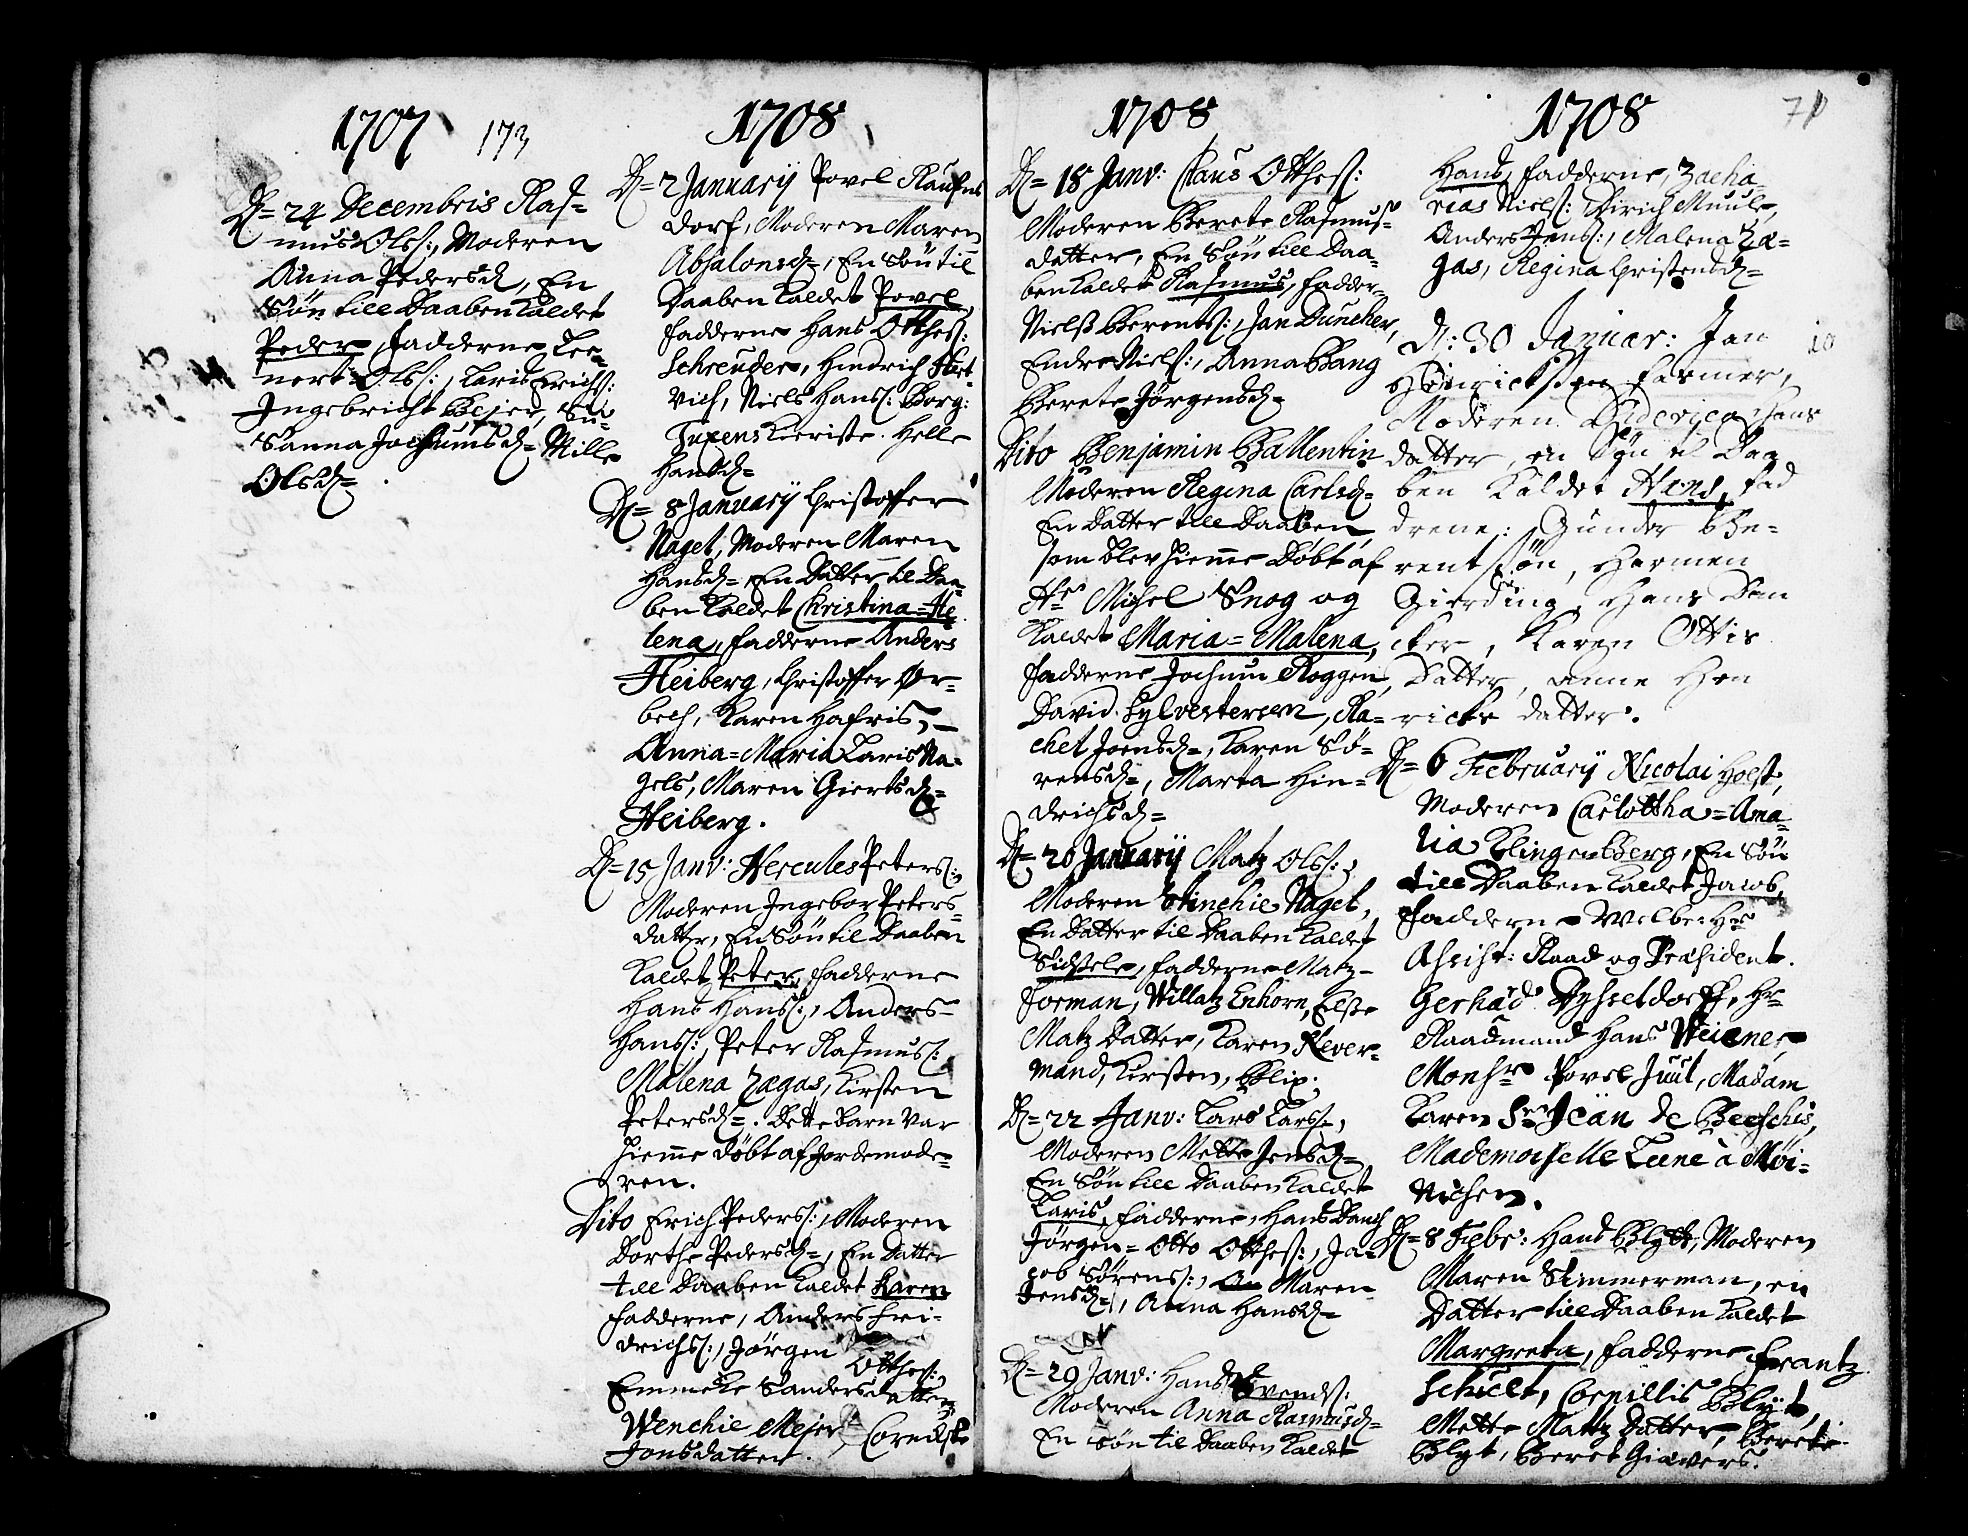 1707 173
D= 24 Decembris Ras=
mus Ols:, Moderen
Anna Pedersd, En
Søn till Daaben Kaldet
Peder, Fadderne Lee=
nert Ols:, Laris Erichs:
Ingebricht Bejer, Su=
sanna Jochumsd= Mille
Olsd=
1708
D= 2 Januarij Povel
dorf, Moderen Maren
Absalonsd=, En Søn til
Daaben Kaldet Povel,
Fadderne Hans Otthes:
Schreuder, Hindrich Hert=
vich, Niels Hans: Borg:
Tuxens Kieriste. Helle
Hansd=
D= 8 Januarij Christoffer
Nagel, Moderen Maren
Hansd= En Datter til Daa=
ben Kaldet Christina=He=
lena, Fadderne Anders
Heiberg, Christoffer Ør=
bech, Karen Hafris,
Anna=Maria Laris Na=
gels, Maren Giertsd=
Heiberg.
D= 15 Janv: Hercules Peters:,
Moderen Ingebor Peters=
datter, En Søn til Daaben
Kaldet Peter, Fadderne
Hans Hans:, Anders
Hans:, Peter Rasmus:
Malena Zagas, Kirsten
Petersd=. Dette Barn var
hiemme døbt af Jordemode=
ren.
Dito Erich Peders:, Moderen
Dorthe Pedersd=, En Datter
till Daaben Kaldet Karen
Fadderne, Anders Fri=
drichs:, Jørgen
Otthes:,
Emmeke Sandersdatter
Wenchie Mejer,
Jonsdatter.
1708
D= 18 Janv: Claus Otthes:
Moderen Berete Rasmus=
datter, En Søn till Daa=
ben Kaldet Rasmus, Fadder=
Niels Berents:, Jan Duncher,
Endre Niels:, Anna Bang
Berete Jørgensd=
Dito Benjamin Ballentin
Moderen Regina Carlsd=
En Datter till Daaben,
som blev hiemme Døbt af
Hr Michel Snog og
Kaldet Maria=Malena,
Fadderne Jochum Roggen,
David Sylvestersen, Ra=
chel Joensd=, Karen Sø=
rensd=, Marta Hin=
drichsd=
D= 20 Januarij Matz Ols:,
Moderen Stinchie Nagel,
En Datter til Daaben Kaldet
Sidsele, Fadderne Matz
Forman, Willatz Enhorn, Else
Matz Datter, Karen Klever=
mand, Kirsten, Blix.
D= 22 Janv: Lars Lars:,
Moderen Mette Jensd=
En Søn till Daaben Kaldet
Laris, Fadderne, Hans Bauch
Jørgen= Otto Otthes:, Ja=
cob Sørens:, An Maren
Jensd=, Anna Hansd=
D= 29 Janv: Hans
Svends:
Moderen Anna Rasmusd=
En Søn til Daaben Kaldet
1708 71
Hans, Fadderne, Zacha=
rias Niels: Dirich Muule,
Anders Jens:, Malena Za=
gas, Regina Christensd=
D: 30 Januar: Jan 10
Hinrickssen Farmer,
Moderen Hans
datter, en Søn til Daa
ben Kaldet Hans, Fad
drene: Gunder Be=
rentsøn, Harmen
Gierding, Hans Dun
cker, Karen Ottis
Datter, Anne Hen
ricks datter.
D= 6 Februarij Nicolai Holst,
Moderen Carlottha=Ama=
lia Klingenberg, En Søn
till Daaben Kaldet Jacob,
Fadderne Welbe: Hr
Raad og Præsident.
Gerhad Dysseldorff, Hr
Raadmand Hans Weiener
Monsr Povel Juul, Madam
Karen Sr Jean de Beesches,
Mademoiselle Lene à Møi=
nichen.
D= 8 Febr: Hans Blytt, Moderen
Maren Simmerman, en
Datter till Daaben Kaldet
Margreta, Fadderne Frantz
Schult, Cornillis Blyt,
Mette Matz Datter, Berete
Blyt, Beret Giævers.